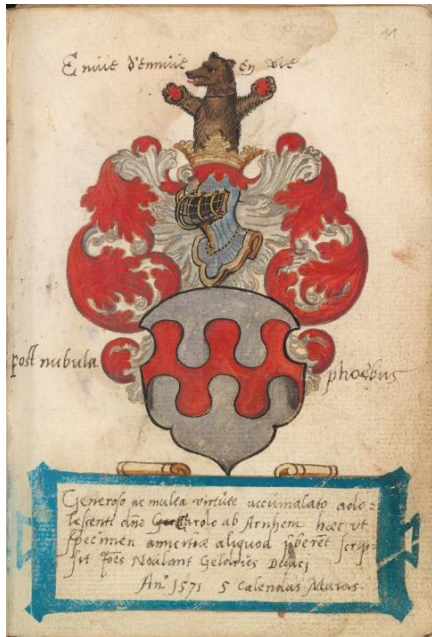 11
Envie d'envie en vie
post nubula phoebus
Generoso ac multa virtute accumalato ado=
lescenti dno Carolo ab Arnhem haec ut
specimen amicitiae aliquod haberet scrip=
sit Joes Geldries Duaci
An° 1571 5 Calendas